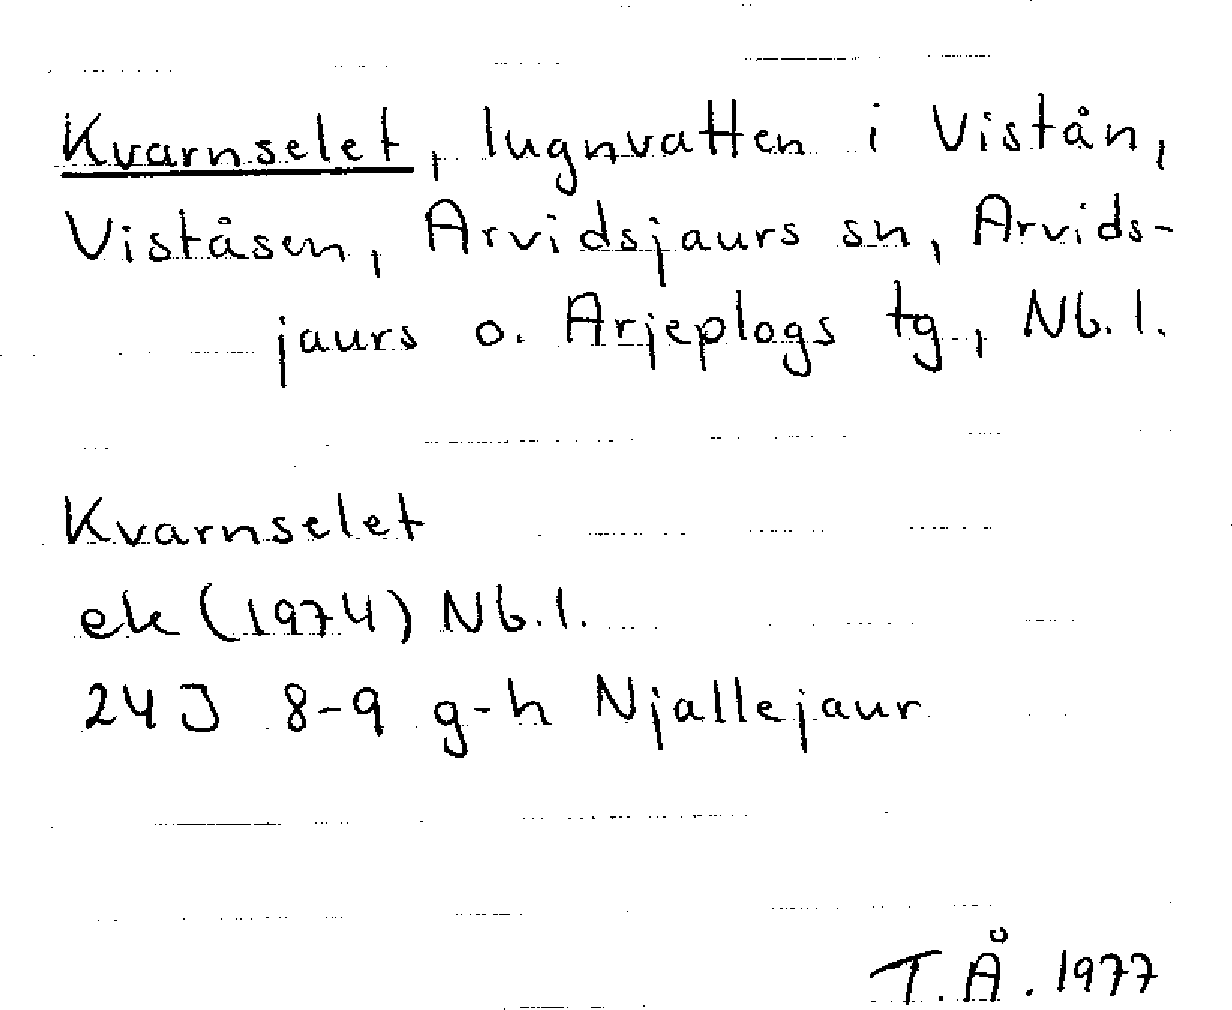 Kvarnselet, lugnvatten i Vistån,
Viståsen, Arvidsjaurs sn, Arvids-
jaurs o. Arjeplogs tg, Nb.l.
Kvarnselet
ek (1974) Nb.l.
24J 8-9 g-h Njallejaur
T.Å. 1977